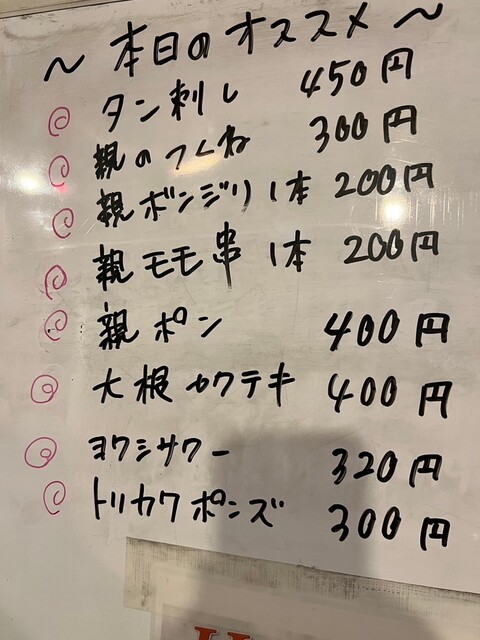 ～本日のオススメ～
タン刺し 450円
親のつくね 300円
親ボンジリ1本 200円
親モモ串1本 200円
親ポン 400円
大根カクテキ 400円
ヨクシサワー 320円
トリカワポンズ 300円